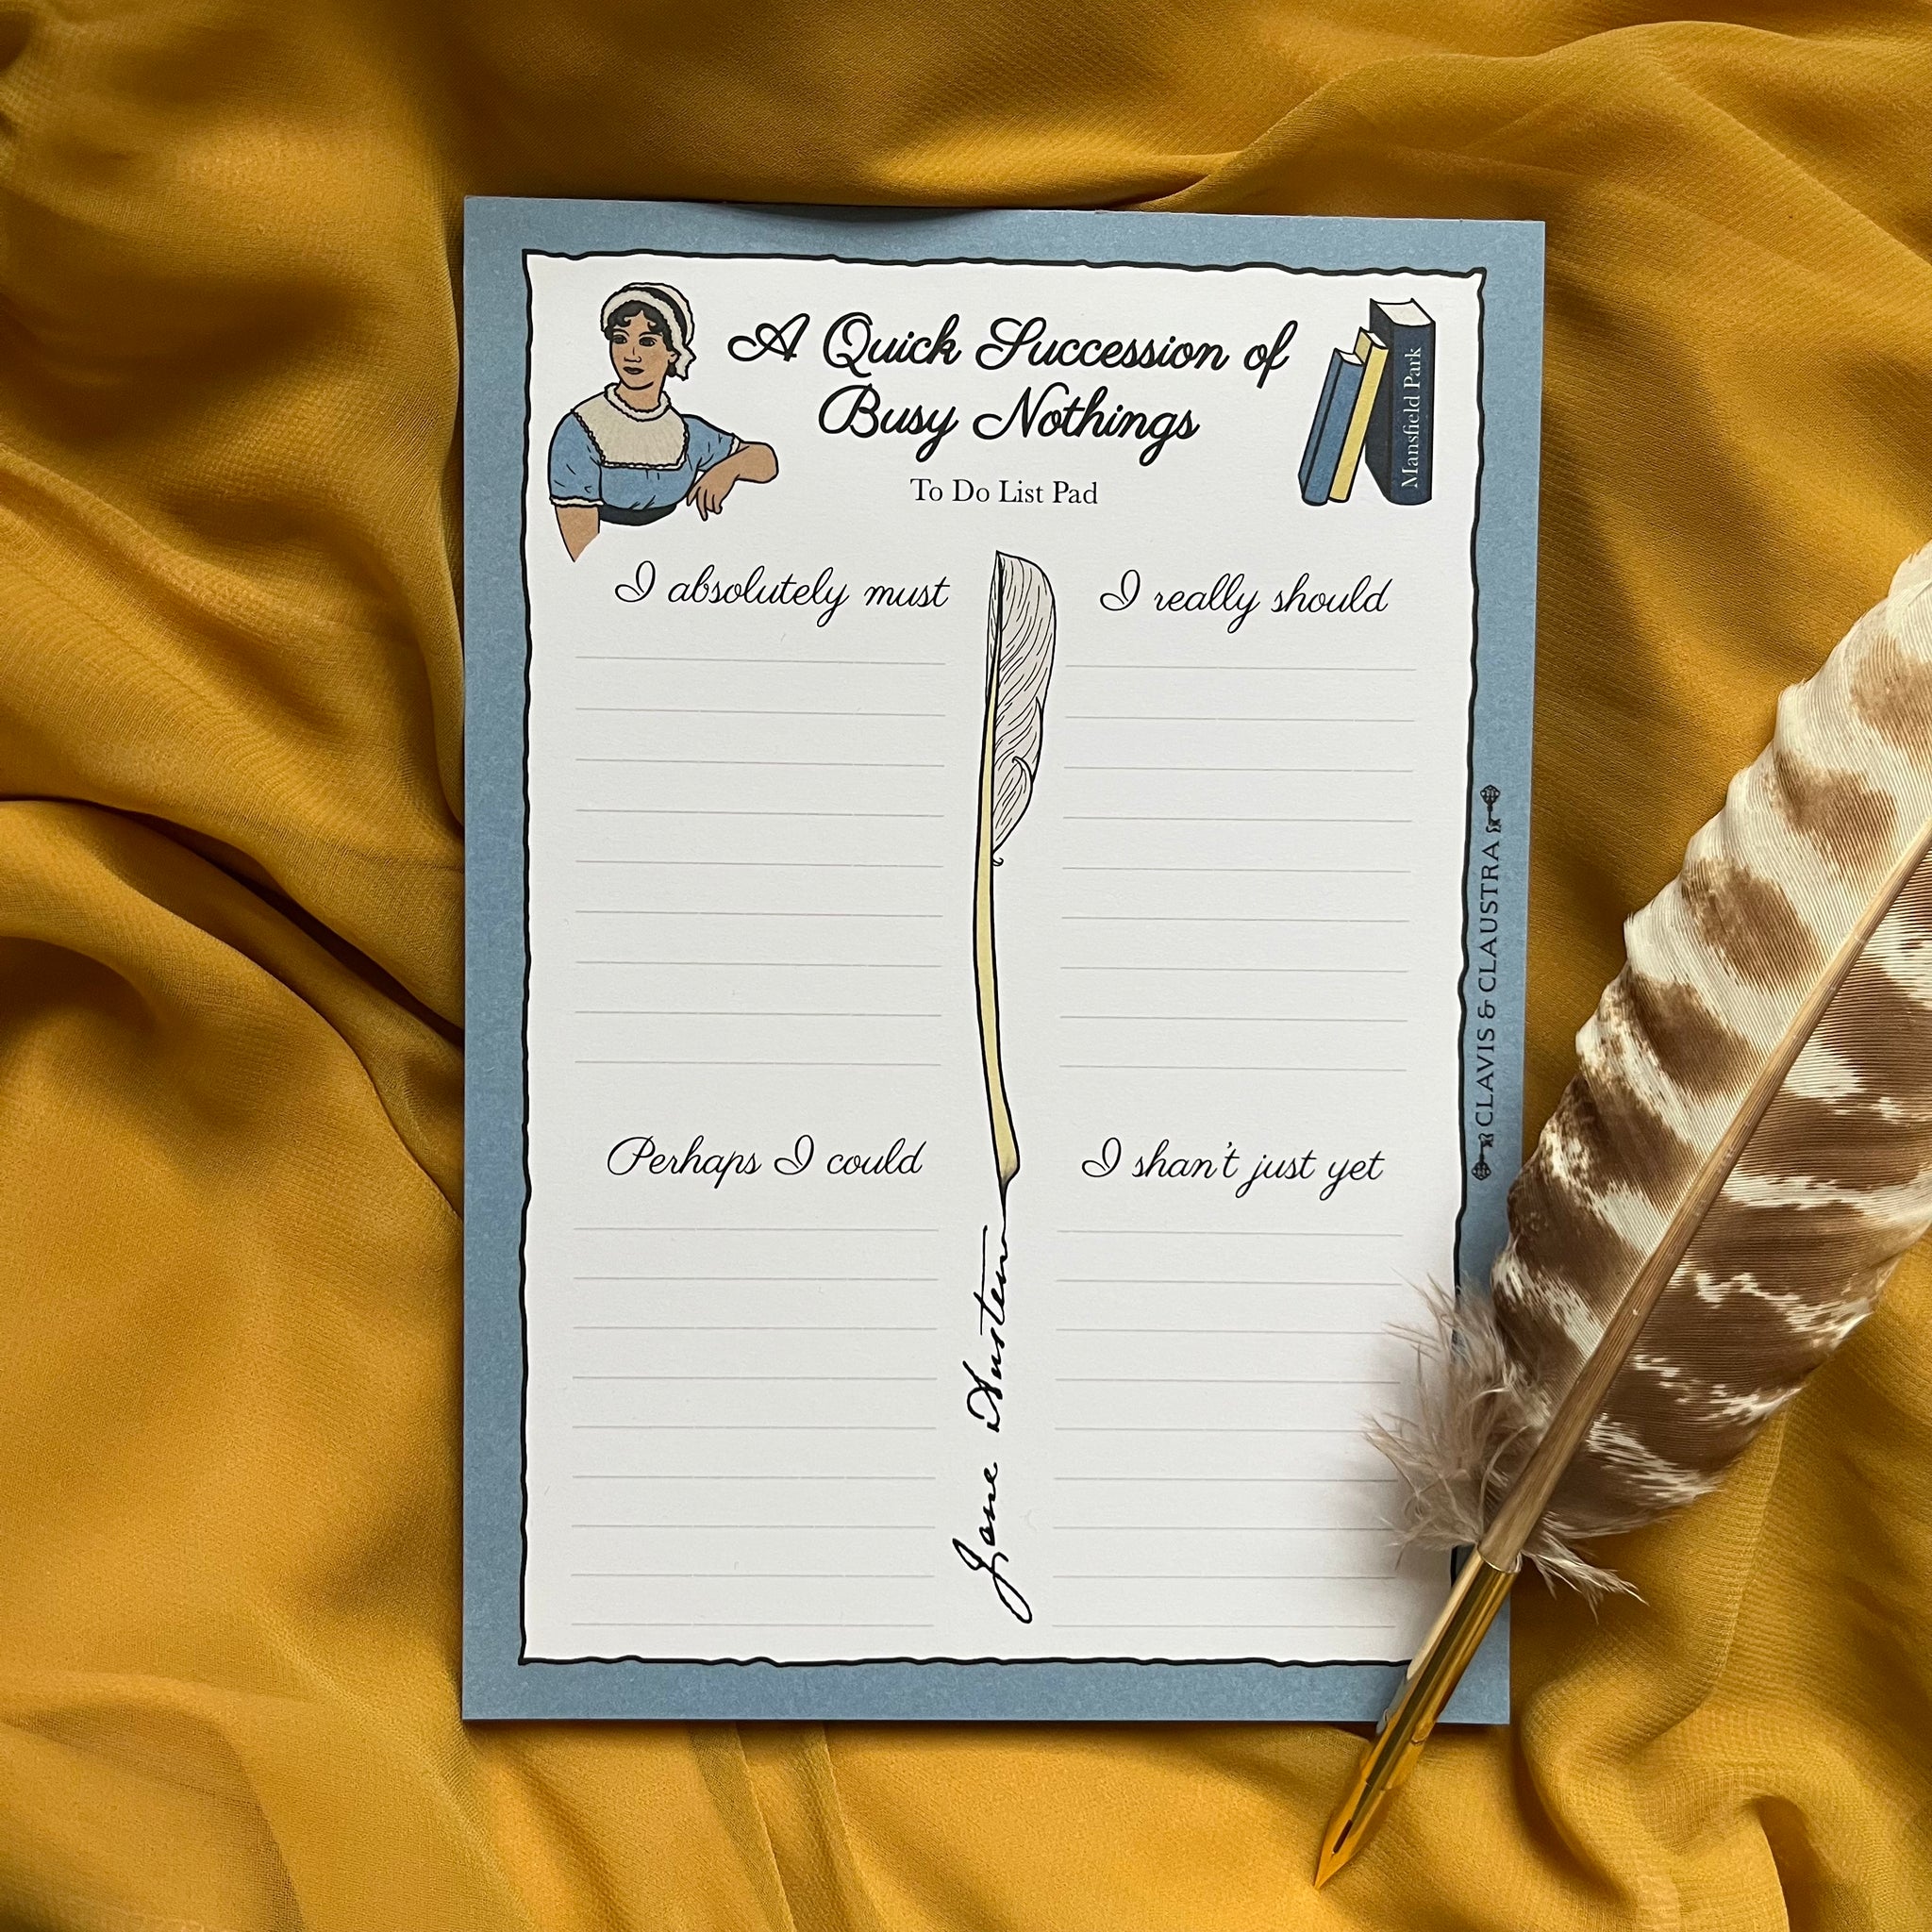 A Quick Succession of
Busy Nothings
To Do List Pad
Mansfield Park
I absolutely must
I really should
Perhaps I could
I shan't just yet
Jane Austen
CLAVIS & CLAUSTRA